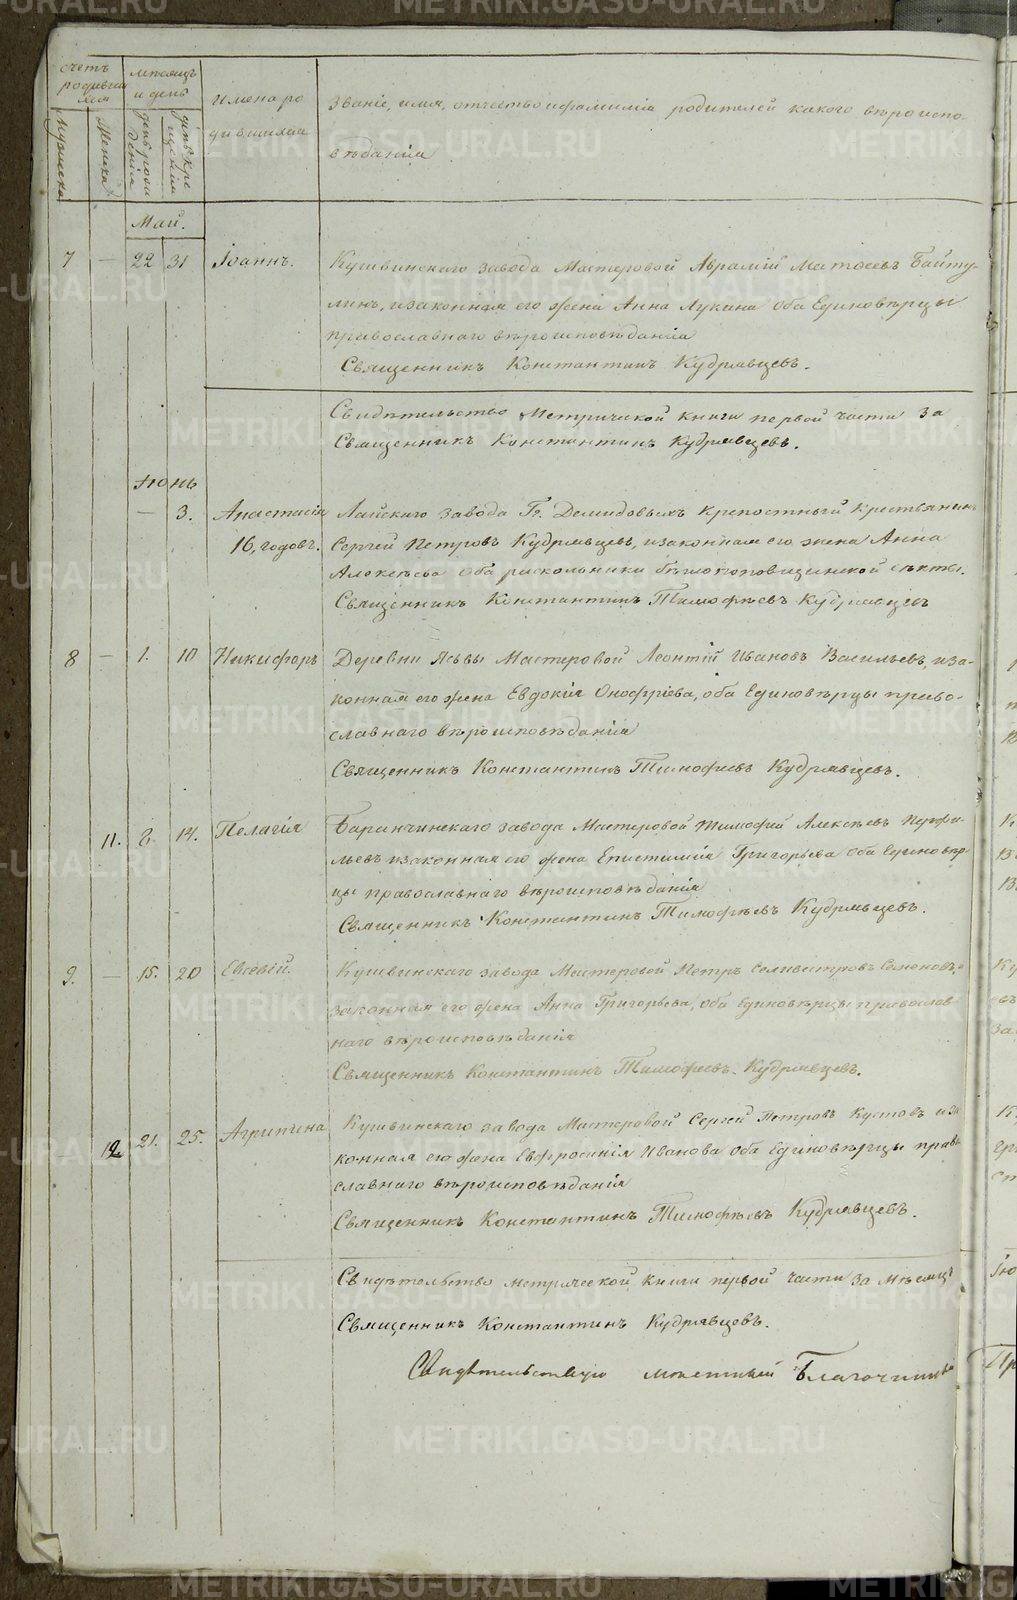 счетъ родивши хся
мѣсяцъ и день
мужеска
женска
день рожденія
день крещенія
Имена родившихся
Званіе, имя, отчество и фамилія родителей какого вѣроисповѣданія
Май.
7 — 22 31 Іоаннъ. Кушвинскаго завода Мастеровой Аврамій Матвеевъ Байту-
линъ, изаконная его жена Анна Лукина оба Единовѣрцы
православнаго вѣроисповѣданія
Священникъ Константинъ Кудрявцевъ.
Свидѣтельство Метрической книги первой части за
Священникъ Константинъ Кудрявцевъ.
Іюнь
— 3. Анастасія Лайскаго завода Гг. Демидовыхъ крепостный крестьянинъ
16, годовъ. Сергей Петровъ Кудрявцевъ, изаконная его жена Анна
Алексѣева оба раскольники бѣглопоповщинской секты.
Священникъ Константинъ Тимофѣевъ Кудрявцевъ
8 — 1. 10 Никифоръ Деревни Ясьвы Мастеровой Леонтій Ивановъ Васильевъ, иза-
конная его жена Евдокія Онофріева, оба Единовѣрцы право-
славнаго вѣроисповѣданія
Священникъ Константинъ Тимофиевъ Кудрявцевъ.
11. 8. 14. Пелагія Баранчинскаго завода Мастеровой Тимофей Алексѣевъ Перфи-
льевъ изаконная его жена Епистимія Григорьева оба Единовѣр
цы православнаго вѣроисповѣданія
Священникъ Константинъ Тимофѣевъ Кудрявцевъ.
9. — 15. 20 Евсевій. Кушвинскаго завода Мастеровой Петръ Селивестровъ Семеновъ, и
законная его жена Анна Григорьева, оба Единовѣрцы православ-
наго вѣроисповѣданія
Священникъ Константинъ Тимофеевъ Кудрявцевъ.
12 21. 25. Агрипина Кушвинскаго завода Мастеровой Сергей Петровъ Кустовъ иза
конная его жена Евфросинія Иванова оба Единовѣрцы право
славнаго вѣроисповѣданія
Священникъ Константинъ Тимофѣевъ Кудрявцевъ.
Свидѣтельство метрической книги первой части за мѣсяцъ
Священникъ Константинъ Кудрявцевъ.
Свидѣтельствую местный Благочинный
METRIKI.GASO-URAL.RU